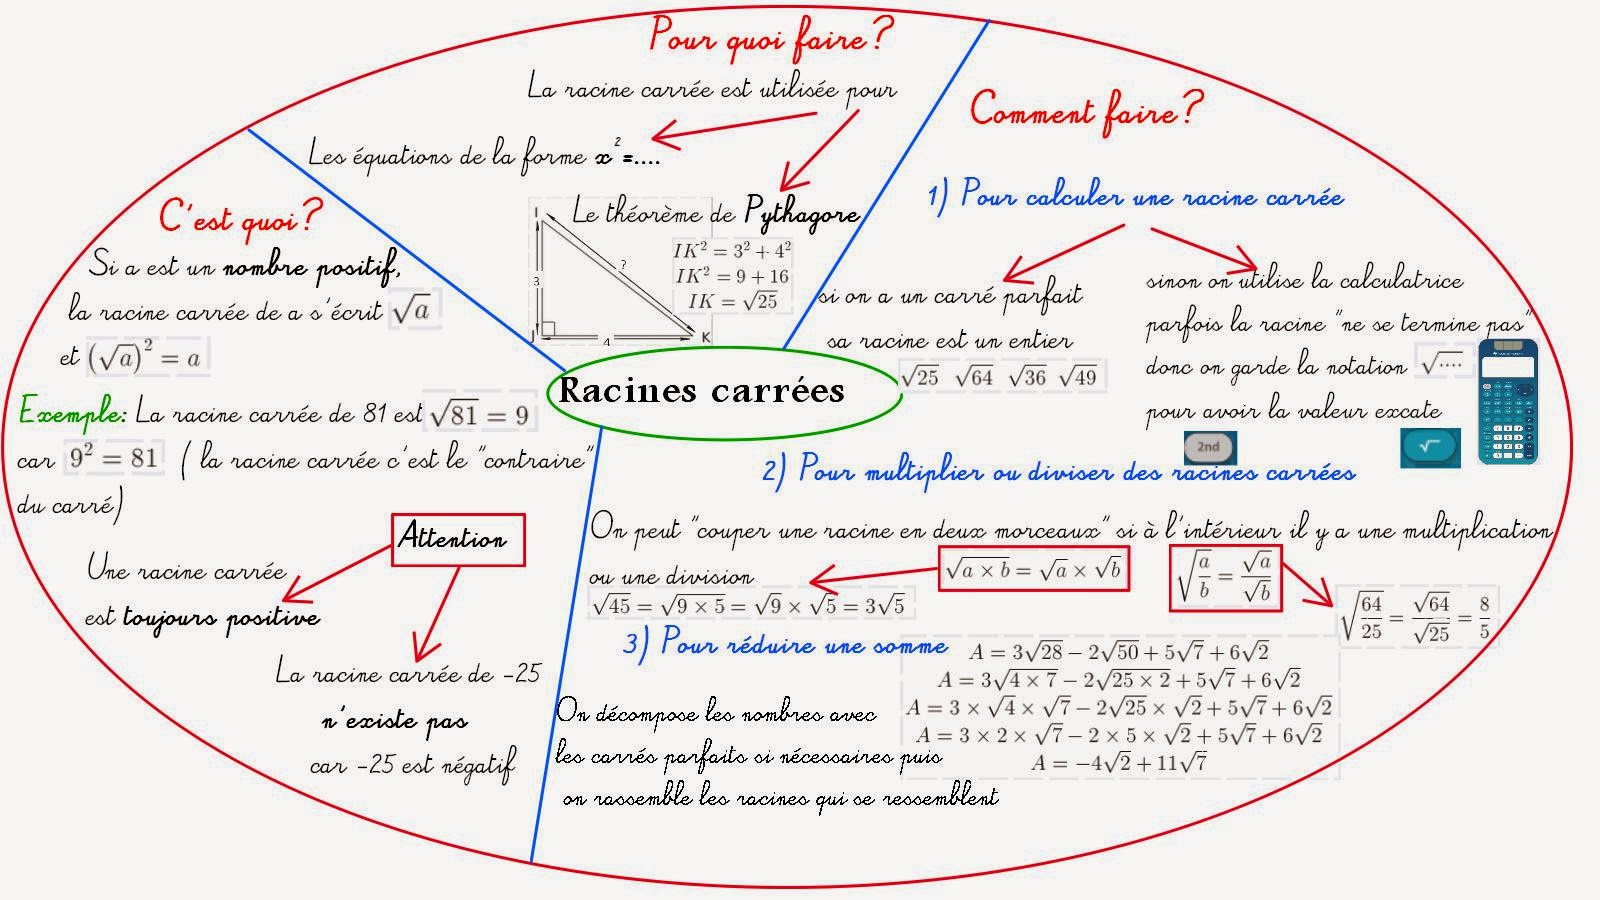 Pour quoi faire?
La racine carrée est utilisée pour
Les équations de la forme x²=....
Le théorème de Pythagore
I
3
?
J
4
K
IK² = 3² + 4²
IK² = 9 + 16
IK = √25
C'est quoi?
Si a est un nombre positif,
la racine carrée de a s'écrit √a
et (√a)² = a
Exemple: La racine carrée de 81 est √81 = 9
car 9² = 81 ( la racine carrée c'est le "contraire"
du carré)
Attention
Une racine carrée
est toujours positive
La racine carrée de -25
n'existe pas
car -25 est négatif
Racines carrées
Comment faire?
1) Pour calculer une racine carrée
si on a un carré parfait
sa racine est un entier
√25 √64 √36 √49
sinon on utilise la calculatrice
parfois la racine "ne se termine pas"
donc on garde la notation √....
pour avoir la valeur excate
2nd
√
2) Pour multiplier ou diviser des racines carrées
On peut "couper une racine en deux morceaux" si à l'intérieur il y a une multiplication
ou une division
√(a × b) = √a × √b
√(a/b) = √a/√b
√45 = √(9 × 5) = √9 × √5 = 3√5
√(64/25) = √64/√25 = 8/5
3) Pour réduire une somme
On décompose les nombres avec
les carrés parfaits si nécessaires puis
on rassemble les racines qui se ressemblent
A = 3√28 − 2√50 + 5√7 + 6√2
A = 3√(4 × 7) − 2√(25 × 2) + 5√7 + 6√2
A = 3 × √4 × √7 − 2√25 × √2 + 5√7 + 6√2
A = 3 × 2 × √7 − 2 × 5 × √2 + 5√7 + 6√2
A = −4√2 + 11√7